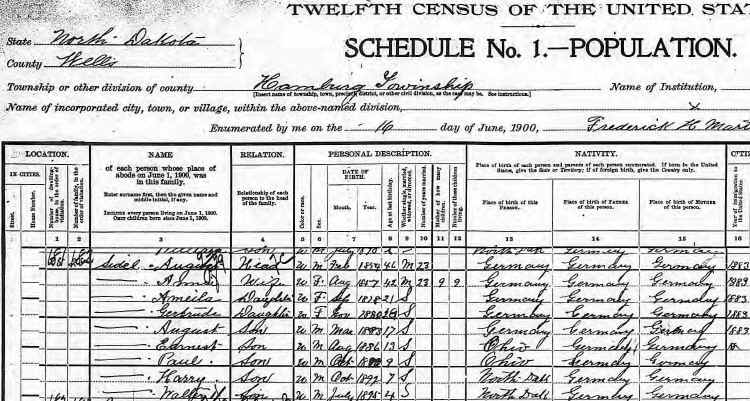 TWELFTH CENSUS OF THE UNITED STA
State North Dakota
SCHEDULE No. 1.—POPULATION.
County Wells
Township or other division of county Hamburg Township Name of Institution,
[Insert name of township, town, precinct, district, or other civil division, as the case may be. See instructions.]
Name of incorporated city, town, or village, within the above-named division, X
Enumerated by me on the 16 day of June, 1900, Frederick H. Mart
LOCATION. NAME RELATION. PERSONAL DESCRIPTION. NATIVITY. CIT
IN CITIES.
of each person whose place of abode on June 1, 1900, was in this family.
Enter surname first, then the given name and middle initial, if any.
Include every person living on June 1, 1900. Omit children born since June 1, 1900.
Relationship of each person to the head of the family.
DATE OF BIRTH.
Place of birth of each person and parents of each person enumerated. If born in the United States, give the State or Territory; if of foreign birth, give the Country only.
Street. House Number. Color or race. Sex. Month. Year. Age at last birthday.
Place of birth of this Person. Place of birth of Father of this person. Place of birth of Mother of this person.
1 2 3 4 5 6 7 8 9 10 11 12 13 14 15 16
Son W M July S North Dak Germany Germany
Sidel August Head W M Feb 1854 46 M 23 Germany Germany Germany 1883
— Wife W F Aug 1857 42 M 23 9 9 Germany Germany Germany 1883
— Ameila Daughter W F Sep 1878 21 S Germany Germany Germany 1883
— Gertrude Daughter W F Nov 1880 S Germany Germany Germany 1883
— August Son W M Mar 1883 17 S Germany Germany Germany 1883
— Earnest Son W M Aug 1886 13 S Ohio Germany Germany
— Paul Son W M Oct 9 S Ohio Germany Germany
— Harry Son W M Oct 1892 7 S North Dak Germany Germany
— Walter Son W M July 1895 4 S North Dak Germany Germany